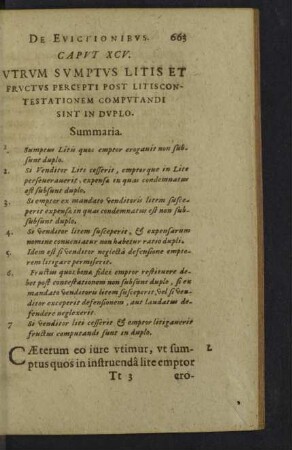 DE EVICTIONIBVS. 663
CAPVT XCV.
VTRVM SVMPTVS LITIS ET
FRVCTVS PERCEPTI POST LITISCON-
TESTATIONEM COMPVTANDI
SINT IN DVPLO.
Summaria.
1. Sumptus Litis quos emptor erogauit non sub-
sunt duplo.
2. Si Venditor Lite cesserit, emptorque in Lite
perseuerauerit, expensa in quas condemnatur
est subsunt duplo.
3. Si emptor ex mandato Venditoris litem susce-
perit expensa in quas condemnatus est non sub-
subsunt duplo.
4. Si Venditor litem susceperit, & expensarum
nomine conueniatur non habetur ratio dupli.
5. Idem est si Venditor neglectâ defensione empto-
rem litigare permiserit.
6. Fructus quos bonæ fidei emptor restituere de-
bet post contestationem non subsunt duplo, si ex
mandato Venditoris litem susceperit, vel si Ven-
ditor exceperit defensionem, aut laudatus de-
fendere neglexerit.
7 Si Venditor liti cesserit & emptor litigauerit
fructus computandi sunt in duplo.
CÆterum eo iure vtimur, vt sum- 1.
ptus quos in instruendâ lite emptor
Tt 3 ero-